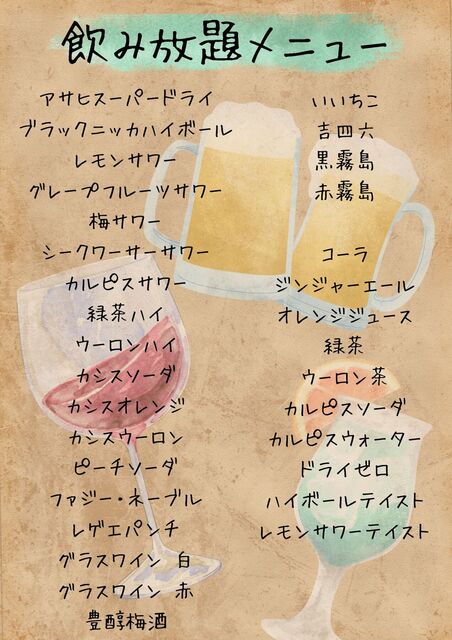 飲み放題メニュー
アサヒスーパードライ
ブラックニッカハイボール
レモンサワー
グレープフルーツサワー
梅サワー
シークワーサーサワー
カルピスサワー
緑茶ハイ
ウーロンハイ
カシスソーダ
カシスオレンジ
カシスウーロン
ピーチソーダ
ファジー・ネーブル
レゲエパンチ
グラスワイン 白
グラスワイン 赤
豊醇梅酒
いいちこ
吉四六
黒霧島
赤霧島
コーラ
ジンジャーエール
オレンジジュース
緑茶
ウーロン茶
カルピスソーダ
カルピスウォーター
ドライゼロ
ハイボールテイスト
レモンサワーテイスト